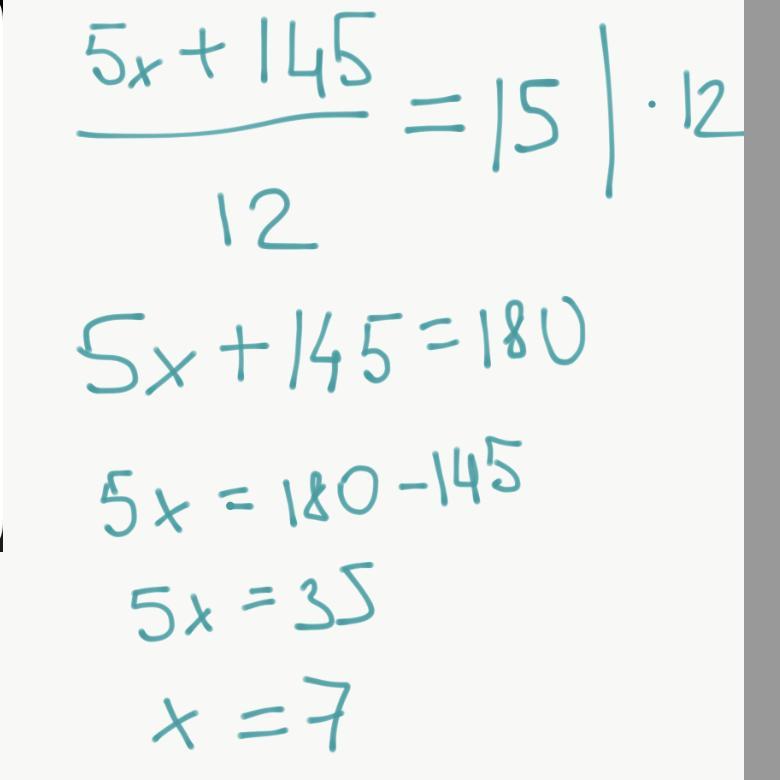 5x + 145
———— = 15 | · 12
12
5x + 145 = 180
5x = 180 - 145
5x = 35
x = 7